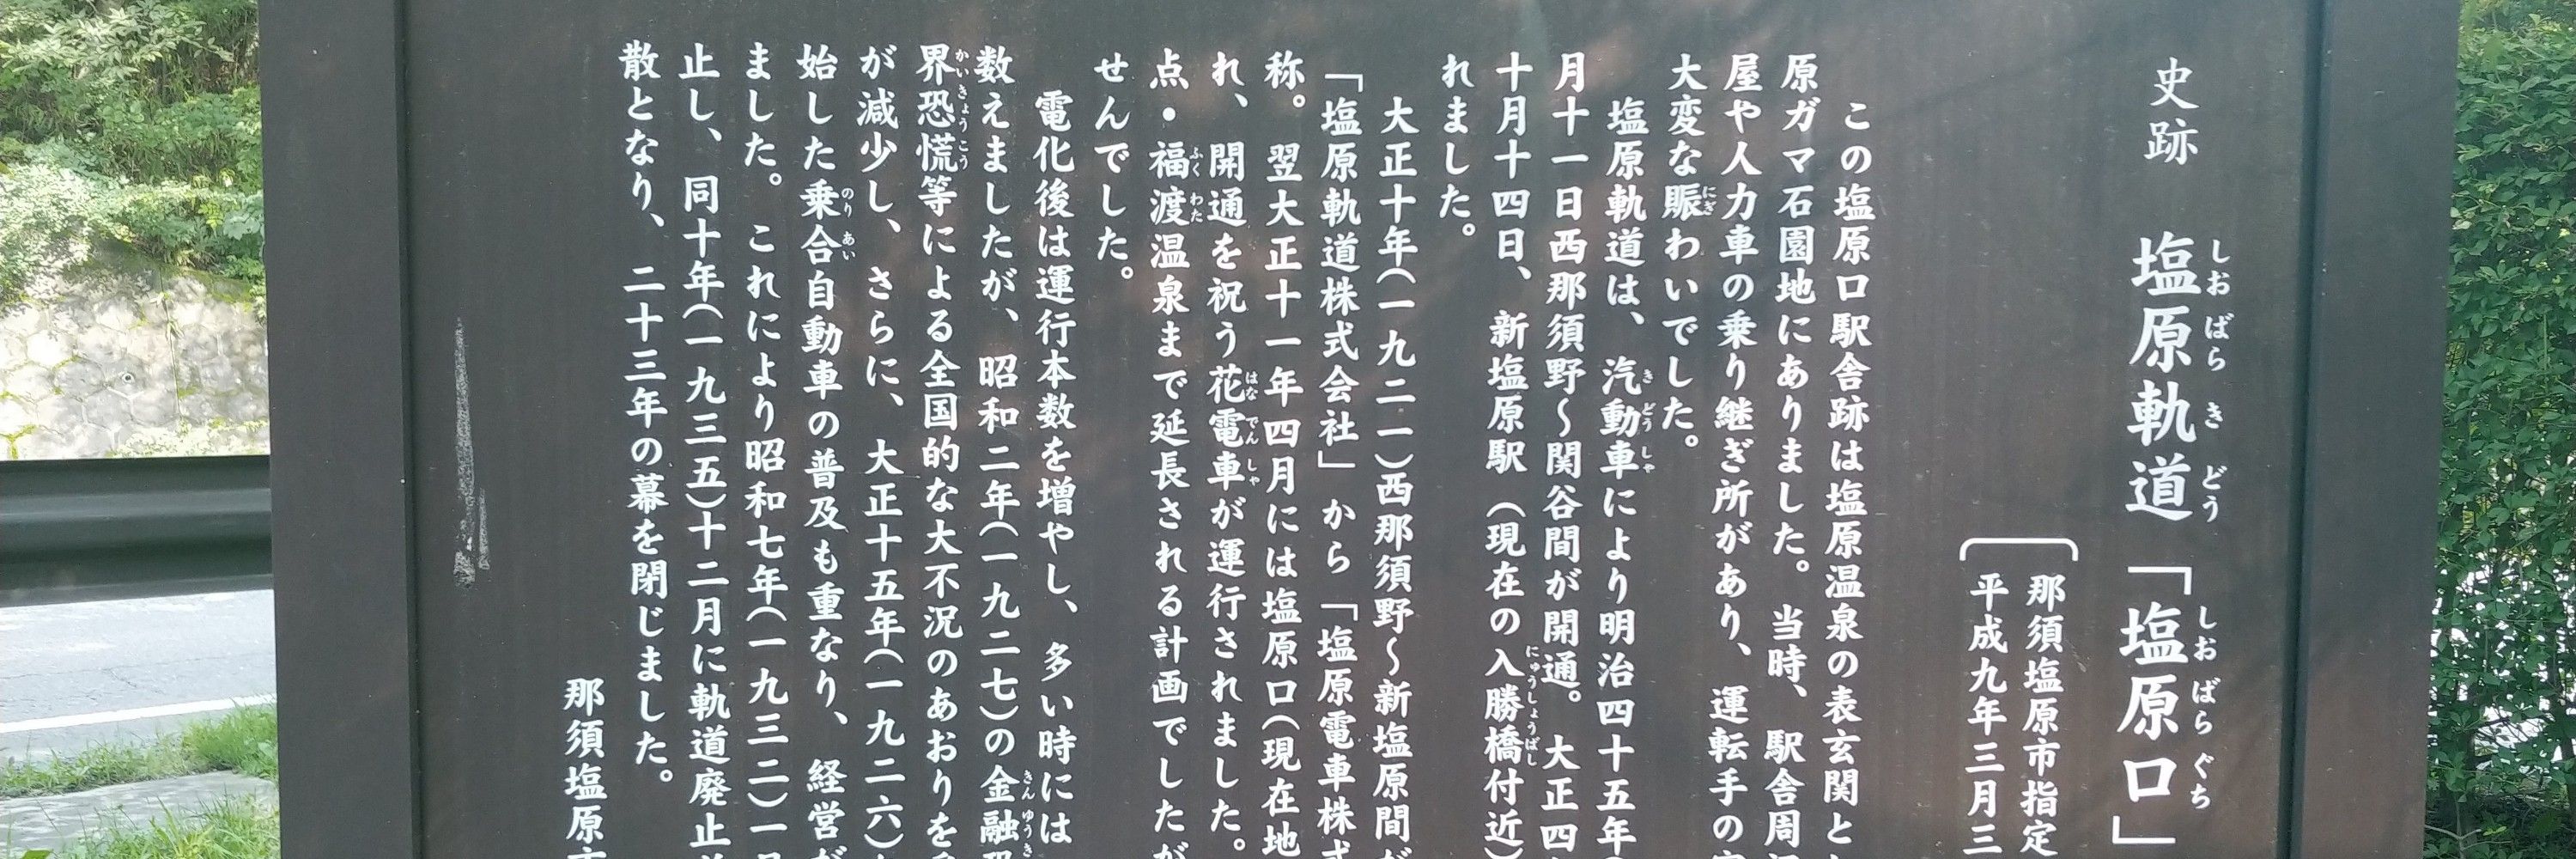 史跡 塩原軌道「塩原口」
しおばらきどう しおばらぐち
那須塩原市指定
平成九年三月三
この塩原口駅舎跡は塩原温泉の表玄関と
原ガマ石園地にありました。当時、駅舎周
屋や人力車の乗り継ぎ所があり、運転手の
大変な賑わいでした。
にぎ
塩原軌道は、汽動車により明治四十五年
きどうしゃ
月十一日西那須野～関谷間が開通。大正四
十月十四日、新塩原駅（現在の入勝橋付近）
にゅうしょうばし
れました。
大正十年（一九二一）西那須野～新塩原間が
「塩原軌道株式会社」から「塩原電車株式
称。翌大正十一年四月には塩原口（現在地
れ、開通を祝う花電車が運行されました。
はなでんしゃ
点・福渡温泉まで延長される計画でしたが
ふくわた
せんでした。
電化後は運行本数を増やし、多い時には
数えましたが、昭和二年（一九二七）の金融恐
きんゆうき
界恐慌等による全国的な大不況のあおりを
かいきょうこう
が減少し、さらに、大正十五年（一九二六）
始した乗合自動車の普及も重なり、経営が
のりあい
ました。これにより昭和七年（一九三二）一月
止し、同十年（一九三五）十二月に軌道廃止
散となり、二十三年の幕を閉じました。
那須塩原市